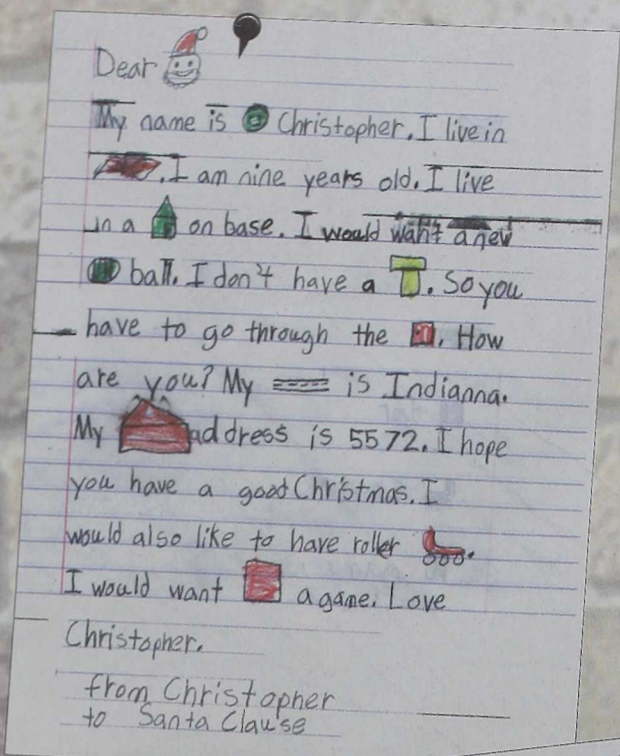 Dear
My name is Christopher. I live in
. I am nine years old. I live
in a on base. I would want a new
ball. I don't have a . So you
have to go through the . How
are you? My is Indianna.
My address is 5572. I hope
you have a good Christmas. I
would also like to have roller .
I would want a game. Love
Christopher.
from Christopher
to Santa Clause